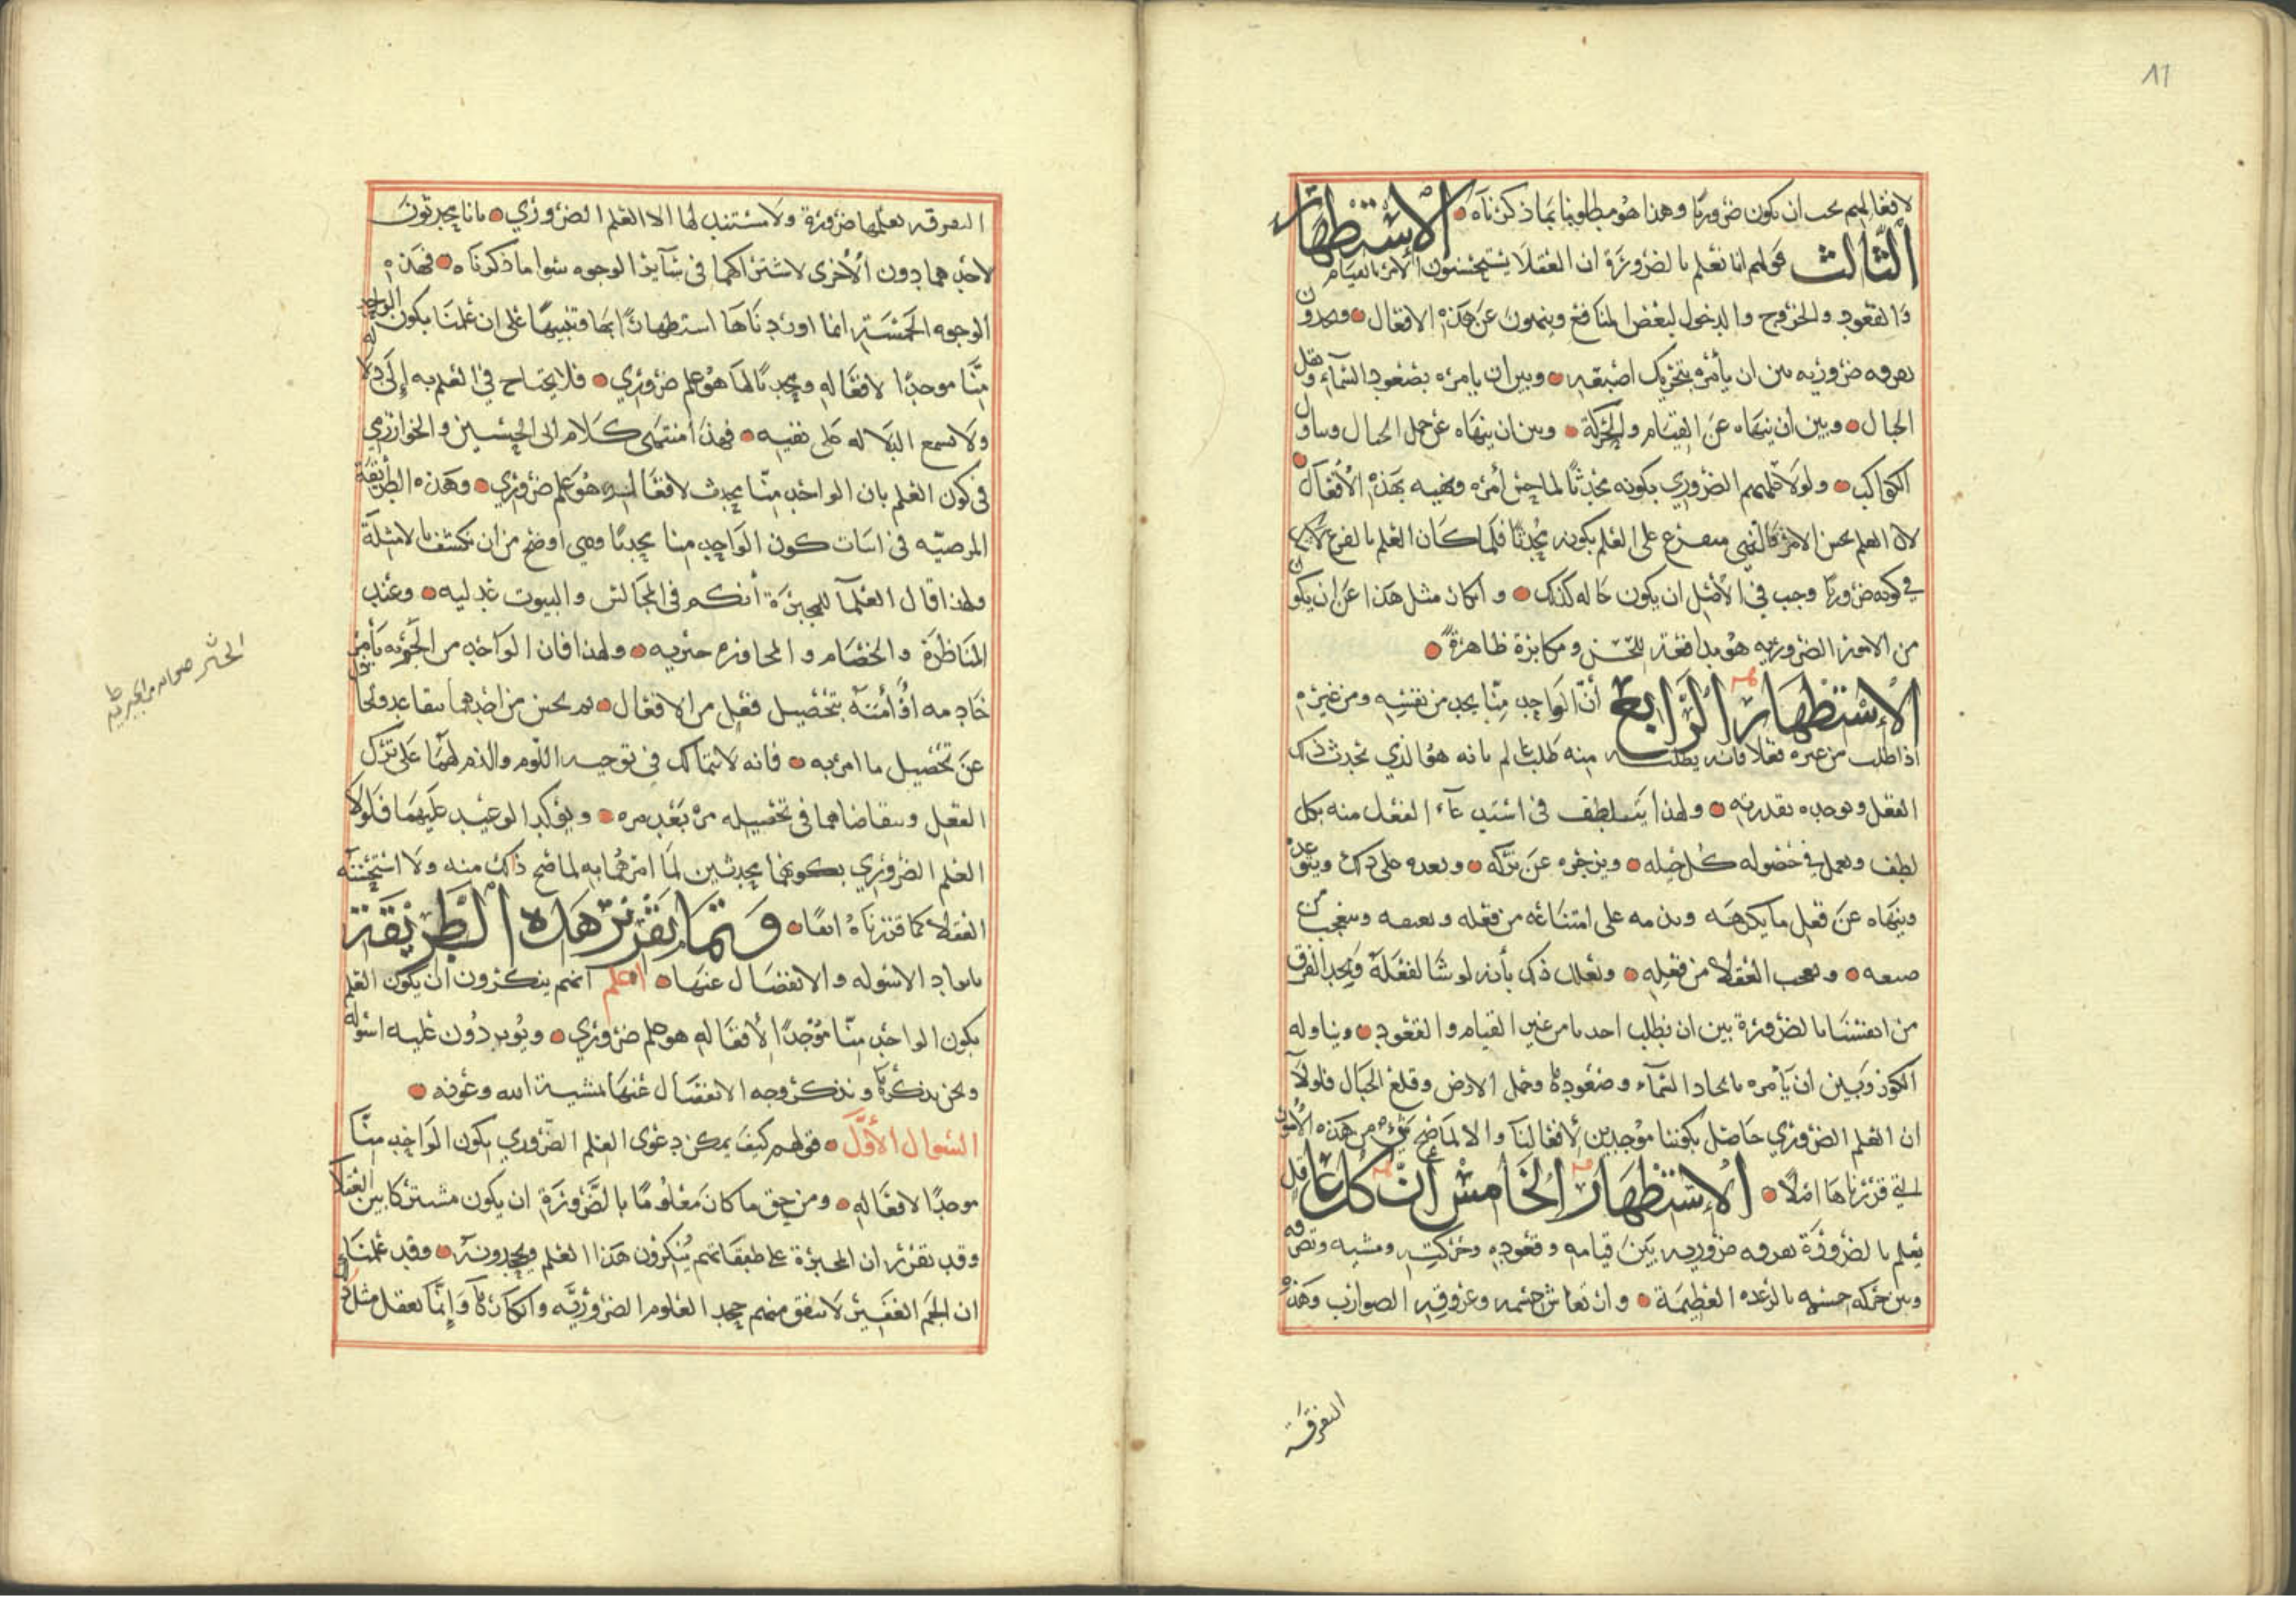 ١١
لافعالهم يجب ان يكون ضروريا وهذا هو مطلوبنا بما ذكرناه الاستظهار
الثالث قولهم انا نعلم بالضرورة ان العقلا يستحسنون الامر بالقيام
والقعود والخروج والدخول لبعض المنافع وينهون عن هذه الافعال ويجدون
تفرقه ضروريه بين ان يأمره بتحريك اصبعه وبين ان يامره بصعود السماء ونقل
الجبال وبين ان ينهاه عن القيام والحركة وبين ان ينهاه عن حمل الجبال وتناول
الكواكب ولولا علمهم الضروري بكونه محدثا لما حسن أمره ونهيه بهذه الافعال
لان العلم بحسن الامر والنهي متفرع على العلم بكونه محدثا فلما كان العلم بالفرع
في كونه ضروريا وجب في الاصل ان يكون حاله كذلك وانكار مثل هذا عن ان يكون
من الامور الضروريه هو مدافعة للحس ومكابرة ظاهرة
الاستظهار الرابع أن الواحد منا يجد من نفسه ومن غيره
اذا طلب من غيره فعلا فانه يطلبه منه طلب عالم بانه هو الذي يحدث ذلك
الفعل ويوجده بقدرته ولهذا يتلطف في استدعاء الفعل منه بكل
لطف ويعمل في حصوله كل حيله ويزجره عن تركه ويعده على ذلك ويتوعده
وينهاه عن فعل ما يكرهه ويذمه على امتناعه من فعله ويعنفه ويتعجب من
صنعه ويعجب العقلاء من فعله ويعلل ذلك بأنه لو شا لفعله ويجد الفرق
من انفسنا بالضرورة بين ان يطلب احدنا من غيره القيام والقعود ومناوله
الكوز وبين ان يأمره بايجاد السماء وصعودها وحمل الارض وقلع الجبال فلولا
ان العلم الضروري حاصل بكوننا موجدين لأفعالنا والا لما صح شيء من هذه الامور
التي قررناها اصلا الاستظهار الخامس أن كل عاقل
يعلم بالضرورة تفرقه ضروريه بين قيامه وقعوده وحركته ومشيه وتصرفه
وبين حركه جسمه بالرعده العظيمة وارتعاش جسمه وعروقه الضوارب وهذه
التفرقة
التفرقه نعلمها ضرورة ولا مستند لها الا العلم الضروري بانا محدثون
لاحدهما دون الأخرى لاشتراكهما في سآير الوجوه سوا ما ذكرناه فهذه
الوجوه الخمسة انما اوردناها استظهارا بها وتنبيها على ان علمنا بكون الواحد
منا موجدا لافعاله ومحدثا لها هو علم ضروري فلا يحتاج في العلم به إلى دلاله
ولا تسمع الدلاله على نفيه فهذا منتهى كلام الى الحسين والخوارزمي
في كون العلم بان الواحد منا محدث لافعاله هو علم ضروري وهذه الطريقة
المرضيه في اثبات كون الواحد منا محدثا وهي اوضح من ان تكشف بالامثلة
ولهذا قال العلمآ للمجبرة أنكم في المجالس والبيوت عدليه وعند
المناظرة والخصام والمحاوره جبريه ولهذا فان الواحد من المجبره يأمر
خادمه أو أمته بتحصيل فعل من الافعال ثم يحس من احدهما تقاعد وتخاذل
عن تحصيل ما امر به فانه لا يتمالك في توجيه اللوم والذم لهما على ترك
الفعل ويتقاضاهما في تحصيله مرة بعد مره ويؤكد الوعيد عليهما فلولا
العلم الضروري بكونهما محدثين لما امرهما به لما صح ذلك منه ولا استحسنه
العقلا كما قررناه انفا وتمام تقرير هذه الطريقة
بايراد الاسوله والانفصال عنها اعلم انهم ينكرون ان يكون العلم
بكون الواحد منا موجدا لأفعاله هو علم ضروري ويوردون عليه اسوله
ونحن نذكرها ونذكر وجه الانفصال عنها بمشية الله وعونه
السوال الأول قولهم كيف يمكن دعوى العلم الضروري بكون الواحد منا
موجدا لافعاله ومن حق ما كان معلوما بالضرورة ان يكون مشتركا بين العقلا
وقد تقرر ان المجبرة على طبقاتهم ينكرون هذا العلم ويجحدونه وقد علمنا
ان الجم الغفير لا يتفق منهم جحد العلوم الضروريه وانكارها وإنما يعقل مثل ذلك